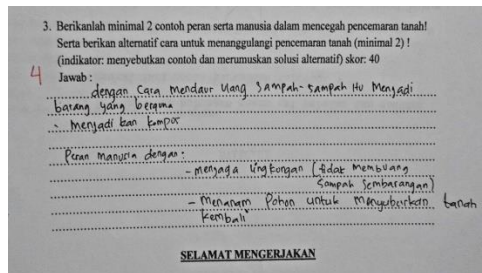 3. Berikanlah minimal 2 contoh peran serta manusia dalam mencegah pencemaran tanah!
Serta berikan alternatif cara untuk menanggulangi pencemaran tanah (minimal 2) !
(indikator: menyebutkan contoh dan merumuskan solusi alternatif) skor: 40
4
Jawab :
dengan Cara Mendaur Ulang Sampah-sampah itu Menjadi
barang yang berguna
- Menjadi kan kompos
Peran manusia dengan :
- menjaga lingkongan (tidak membuang
Sampah Sembarangan)
- Menanam Pohon untuk Menyuburkan tanah
kembali
SELAMAT MENGERJAKAN